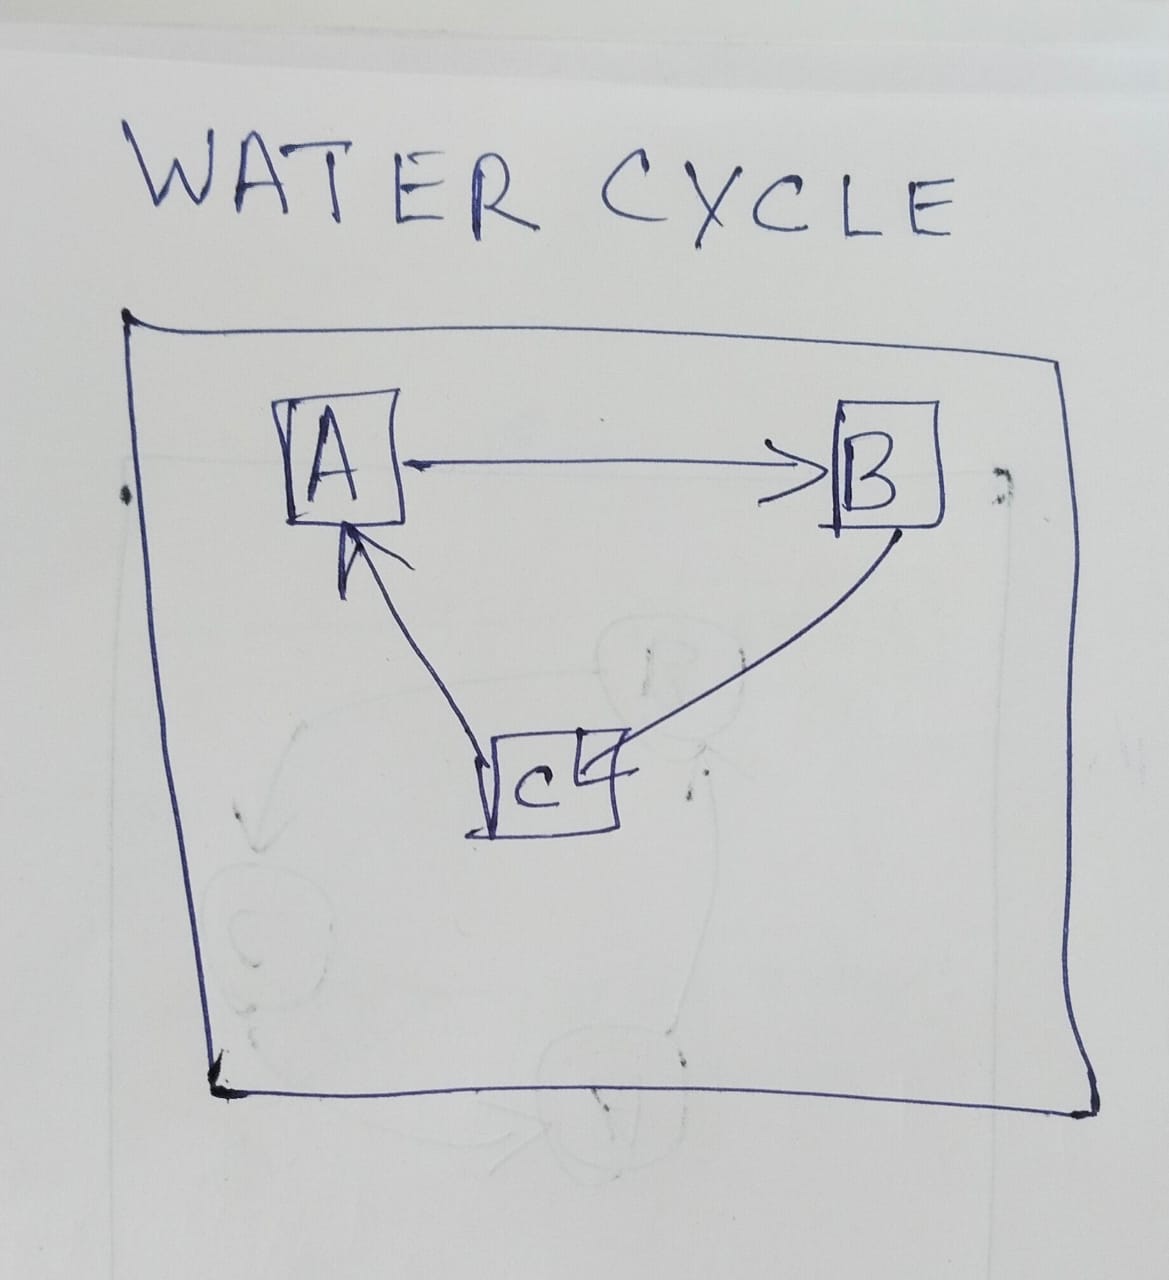 WATER CYCLE
A B
C